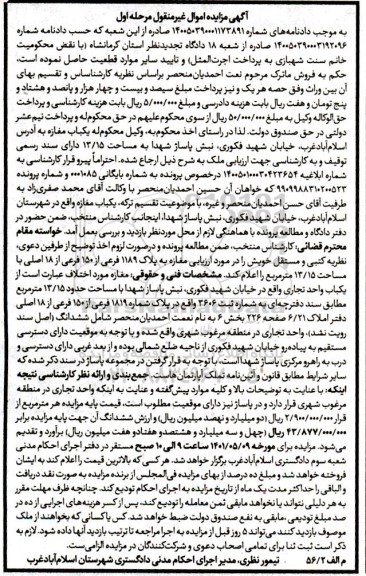 آگهی مزایده اموال غیرمنقول مرحله اول
به موجب دادنامه‌های شماره ۱۴۰۰۵۰۳۹۰۰۰۱۱۷۳۸۹۱ صادره از این شعبه که حسب دادنامه شماره
۱۴۰۰۵۰۳۹۰۰۰۳۱۹۲۰۹۶ صادره از شعبه ۱۸ دادگاه تجدیدنظر استان کرمانشاه (با نقض محکومیت
خانم سنت شهبازی به پرداخت اجرت‌المثل) و تایید سایر موارد قطعیت حاصل نموده است،
حکم به فروش ماترک مرحوم نعمت احمدیان‌منحصر براساس نظریه کارشناسی و تقسیم بهای
آن بین وراث وفق حصه هر یک و نیز پرداخت مبلغ سیصد و بیست و چهار هزار و پانصد و هشتاد و
پنج تومان و هفت ریال بابت هزینه دادرسی و مبلغ ۵/۰۰۰/۰۰۰ ریال بابت هزینه کارشناسی و پرداخت
حق‌الوکاله وکیل به مبلغ ۵۰/۰۰۰/۰۰۰ ریال از سوی محکوم‌علیهم در حق محکوم‌له و پرداخت نیم‌عشر
دولتی در حق صندوق دولت. لذا در راستای اخذ محکوم‌به، وکیل محکوم‌له یکباب مغازه به آدرس
اسلام‌آبادغرب، خیابان شهید فکوری، نبش پاساژ شهدا به مساحت ۱۳/۱۵ دارای سند رسمی
توقیف و به کارشناسی جهت ارزیابی ملک به شرح ذیل ارجاع شده. احتراماً پیرو قرار کارشناسی به
شماره ابلاغیه ۱۴۰۰۵۰۱۰۰۰۳۰۴۲۳۶۵۴ درخصوص پرونده به شماره بایگانی ۰۰۰۱۰۸۵ و شماره پرونده
۹۹۰۹۹۸۸۳۱۰۲۰۰۵۲۳ که خواهان آن حسین احمدیان‌منحصر با وکالت آقای محمد صفری‌زاد به
طرفیت آقای حسن احمدیان‌منحصر و غیره، با موضوعیت تقسیم ترکه، یکباب مغازه واقع در شهرستان
اسلام‌آبادغرب، خیابان شهید فکوری، نبش پاساژ شهدا، اینجانب کارشناس منتخب، ضمن حضور در
دفتر دادگاه و مطالعه پرونده با هماهنگی لازم از محل موردنظر بازدید و بررسی بعمل آمد. خواسته مقام
محترم قضائی: کارشناس منتخب، ضمن مطالعه پرونده و درصورت لزوم اخذ توضیح از طرفین دعوی،
نظریه کتبی و مستقل خویش را در مورد ارزیابی مغازه به پلاک ۱۱۸۹ فرعی از ۱۵۰ فرعی از ۱۸ اصلی با
مساحت ۱۳/۱۵ مترمربع را اعلام کند. مشخصات فنی و حقوقی: مغازه مورد اختلاف عبارت است از
یکباب واحد تجاری واقع در خیابان شهید فکوری، نبش پاساژ شهدا با مساحت حدود ۱۳/۱۵ مترمربع
مطابق سند دفترچه‌ای به شماره ثبت ۳۶۰۶ واقع در پلاک شماره ۱۸۱۹ فرعی از ۱۵۰ فرعی از ۱۸ اصلی
دفتر املاک ۶/۲۱ صفحه ۲۲۶ بخش ۶ به نام نعمت احمدیان‌منحصر شامل ششدانگ (اصل سند
رویت نشد)، واحد تجاری در منطقه مرغوب شهری واقع شده و با توجه به موقعیت دارای دسترسی
مستقیم به پیاده‌رو خیابان شهید فکوری از ناحیه ضلع شمالی بوده و از بعد غربی دارای دسترسی و
درب به راهرو مرکزی پاساژ شهداست، با توجه به قرار گرفتن در مجموعه پاساژ در سند ذکر شده که
سایر شرایط مطابق قانون و آئین‌نامه تملک آپارتمان‌هاست. جمع‌بندی و ارائه نظر کارشناسی نتیجه
اینکه: با عنایت به توضیحات بالا و کلیه موارد پیش‌گفته و عنایت به اینکه واحد تجاری در منطقه
مرغوب شهری قرار دارد و در پاساژ نیز دارای موقعیت مطلوب است، قیمت پایه مزایده هر مترمربع از
قرار ۲/۹۰۰/۰۰۰/۰۰۰ ریال (دو میلیارد و نهصد میلیون ریال) و ارزش ششدانگ آن جهت پایه مزایده برابر
۴۳/۸۷۷/۰۰۰/۰۰۰ ریال (چهل و سه میلیارد و هشتصد و هفتاد و هفت میلیون ریال) برآورد و تقدیم
می‌شود. مزایده برای مورخه ۱۴۰۱/۰۵/۰۸ ساعت ۹ الی ۱۰ صبح مستقر در دفتر اجرای احکام مدنی
شعبه سوم دادگستری اسلام‌آبادغرب برگزار خواهد شد. هر کسی که بالاترین قیمت را اعلام کند به ایشان
فروخته خواهد شد و مبلغ ده درصد از بهای مزایده فی‌المجلس از برنده مزایده به صورت نقد دریافت
و الباقی را حداکثر مدت یک ماه از تاریخ مزایده به اجرای احکام تودیع کند. چنانچه ظرف مهلت مقرر
به هر دلیلی نتواند یا نخواهد مابقی ثمن معامله را تودیع کند، پس از کسر هزینه‌های اجرایی از ده در
صد مبلغ تودیعی، مابقی به نفع صندوق دولت ضبط خواهد شد. کس یا کسانی که بخواهند از ملک
موصوف بازدید کنند می‌تواند ۵ روز قبل از مزایده به اجرا مراجعه تا ترتیب بازدید آنها داده شود. لازم به
ذکر است ثبت ثنا برای تمامی اصحاب دعوی و شرکت‌کنندگان در مزایده الزامی‌ست.
م الف ۵۶/۲ تیمور نظری، مدیر اجرای احکام مدنی دادگستری شهرستان اسلام‌آبادغرب